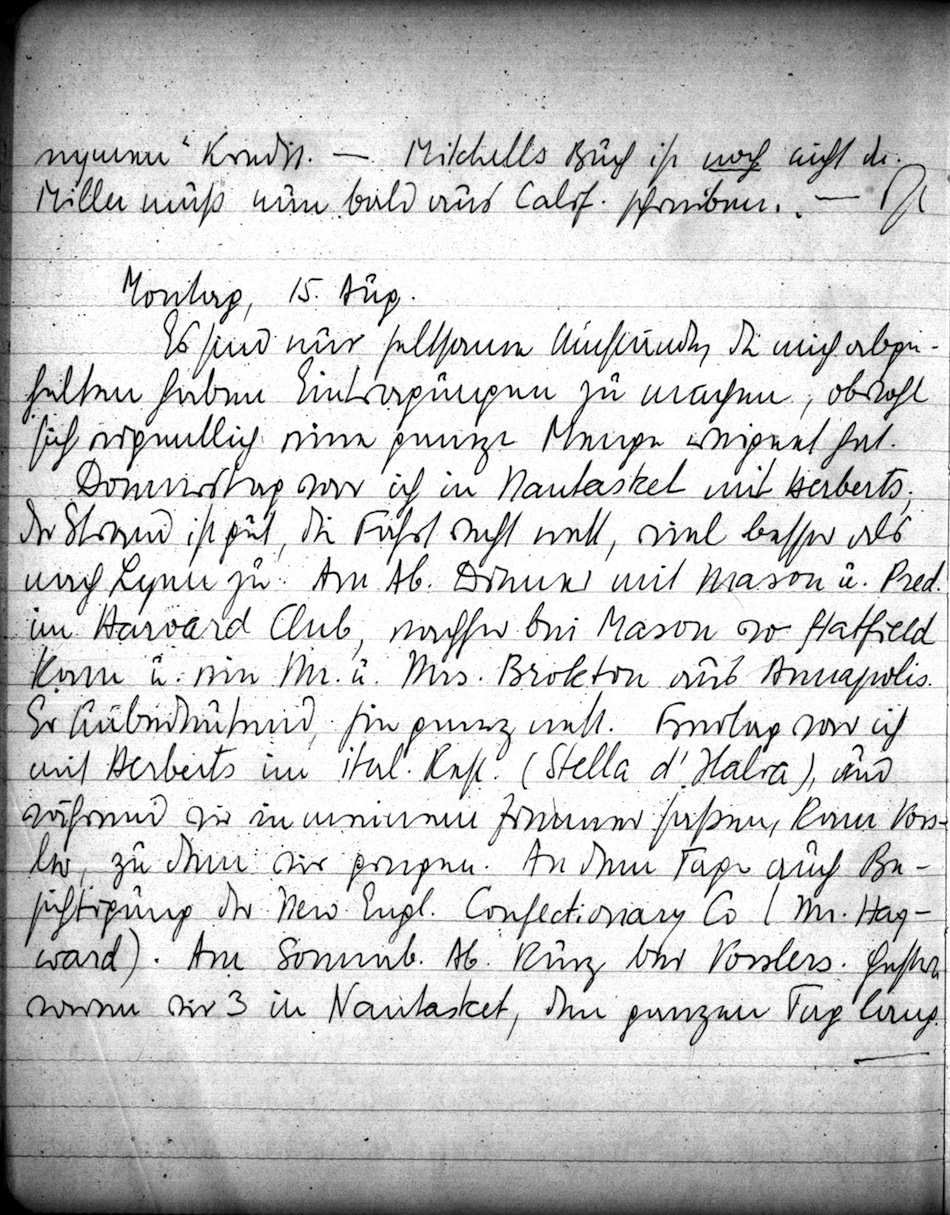 eigenen" Kredit. — Mitchells Buch ist noch nicht da.
Miller muß nun bald aus Calif. schreiben. —
Montag, 15. Aug.
Es sind nur seltsame Umstände, die mich abge-
halten haben Eintragungen zu machen, obwohl
sich eigentlich eine ganze Menge ereignet hat.
Donnerstag war ich in Nantasket mit Herberts,
der Strand ist gut, die Fahrt recht nett, viel besser als
nach Lynn zu. Am Ab. Dinner mit Mason u. Pred.
im Harvard Club, nachher bei Mason wo Hatfield
kam u. ein Mr. u. Mrs. Brokton aus Annapolis.
Er unbedeutend, sie ganz nett. Freitag war ich
mit Herberts im ital. Rest. (Stella d'Italia), und
während wir in meinem Zimmer saßen, kam Voss-
ler, zu dem wir gingen. An dem Tage auch Be-
sichtigung der New Engl. Confectionary Co (Mr. Hay-
ward). Am Sonnab. Ab. kurz bei Vosslers. Gestern
waren wir 3 in Nantasket, den ganzen Tag lang.